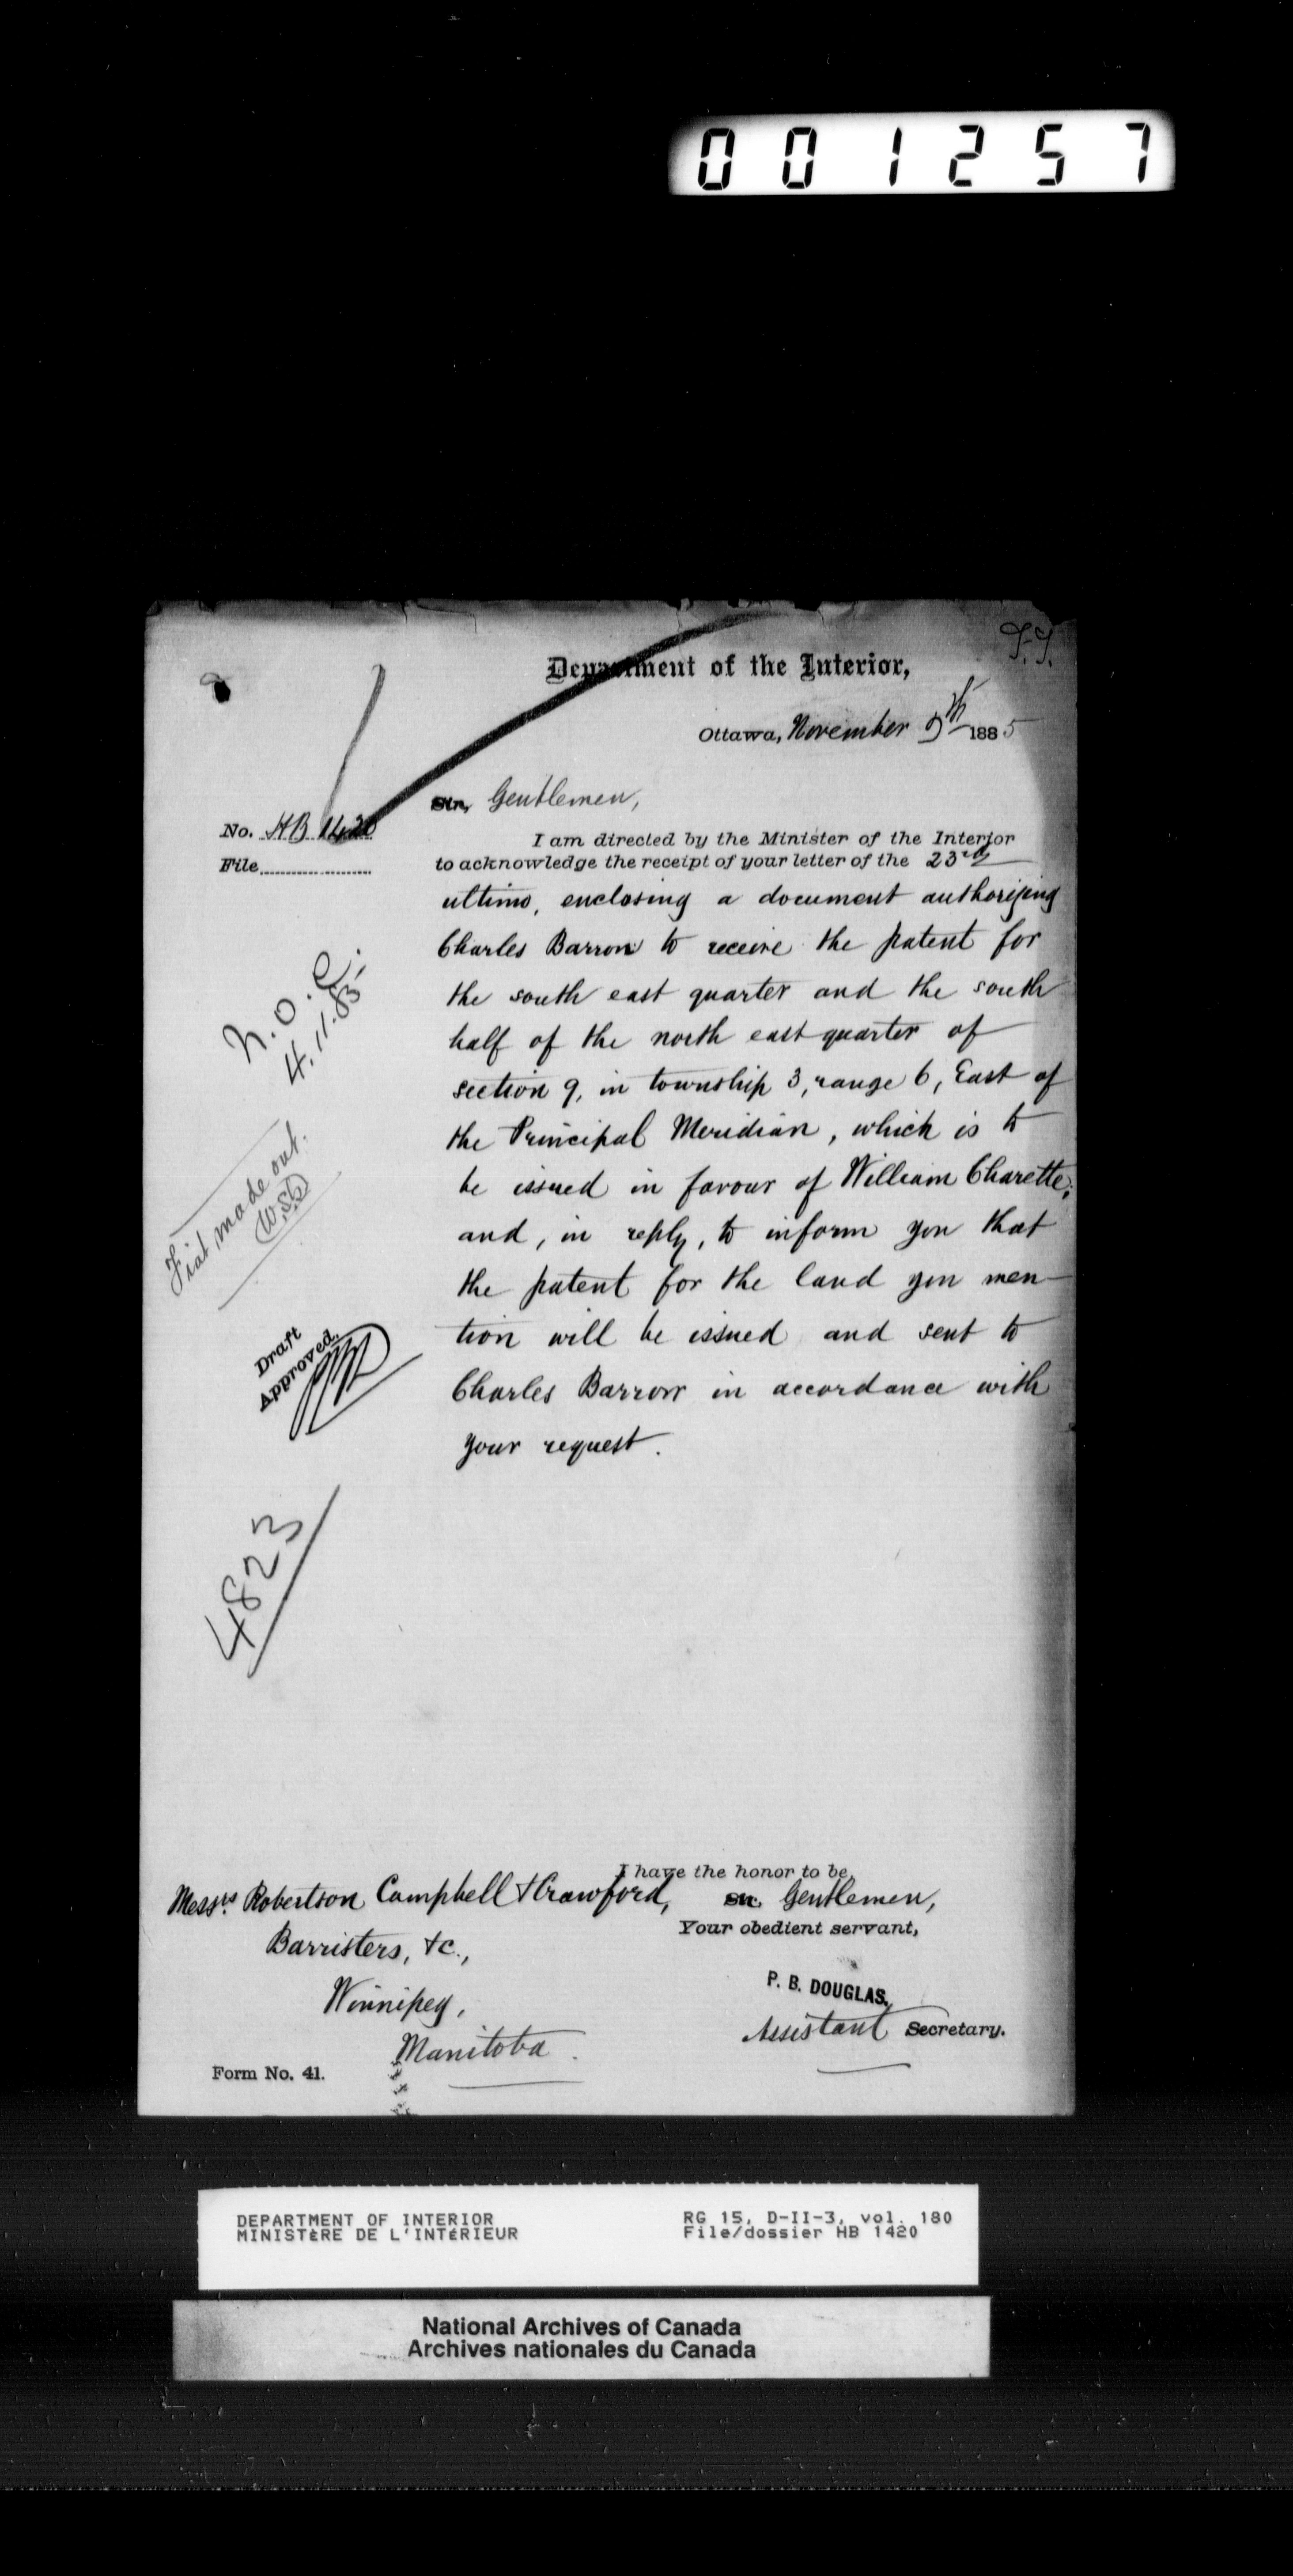 001257
F.J.
Department of the Interior,
Ottawa, November 9th 1885
Sir, Gentlemen,
No. HB 1420
File
I am directed by the Minister of the Interior
to acknowledge the receipt of your letter of the 23rd
ultimo, enclosing a document authorizing
Charles Barron to receive the patent for
the south east quarter and the south
half of the north east quarter of
section 9, in township 3, range 6, East of
the Principal Meridian, which is to
be issued in favour of William Charette;
and, in reply, to inform you that
the patent for the land you men-
tion will be issued and sent to
Charles Barron in accordance with
your request.
N.O.C.
4.11.85
Fiat made out.
Draft
Approved.
4823
I have the honor to be,
Messrs. Robertson Campbell & Crawford,
Sir, Gentlemen,
Your obedient servant,
Barristers, &c.,
Winnipeg,
Manitoba.
P. B. DOUGLAS,
Assistant Secretary.
Form No. 41.
DEPARTMENT OF INTERIOR
MINISTÈRE DE L'INTÉRIEUR
RG 15, D-II-3, vol. 180
File/dossier HB 1420
National Archives of Canada
Archives nationales du Canada